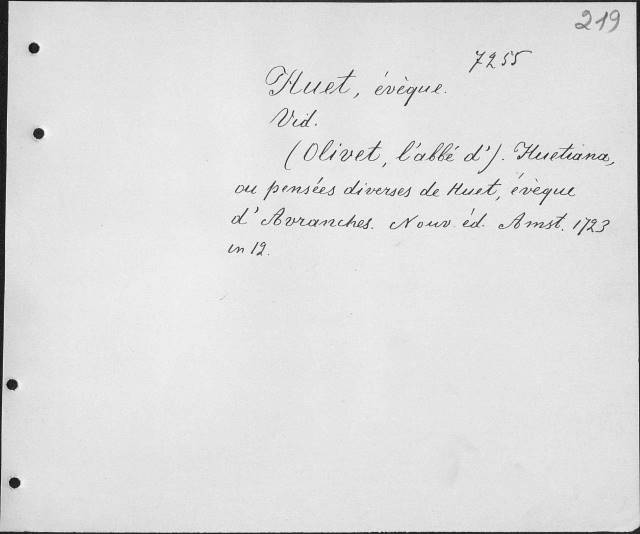 219
7255
Huet, évèque.
Vid.
(Olivet, l'abbé d'). Huetiana,
ou pensées diverses de Huet, évèque
d'Avranches. Nouv. éd. Amst. 1723
in 12.